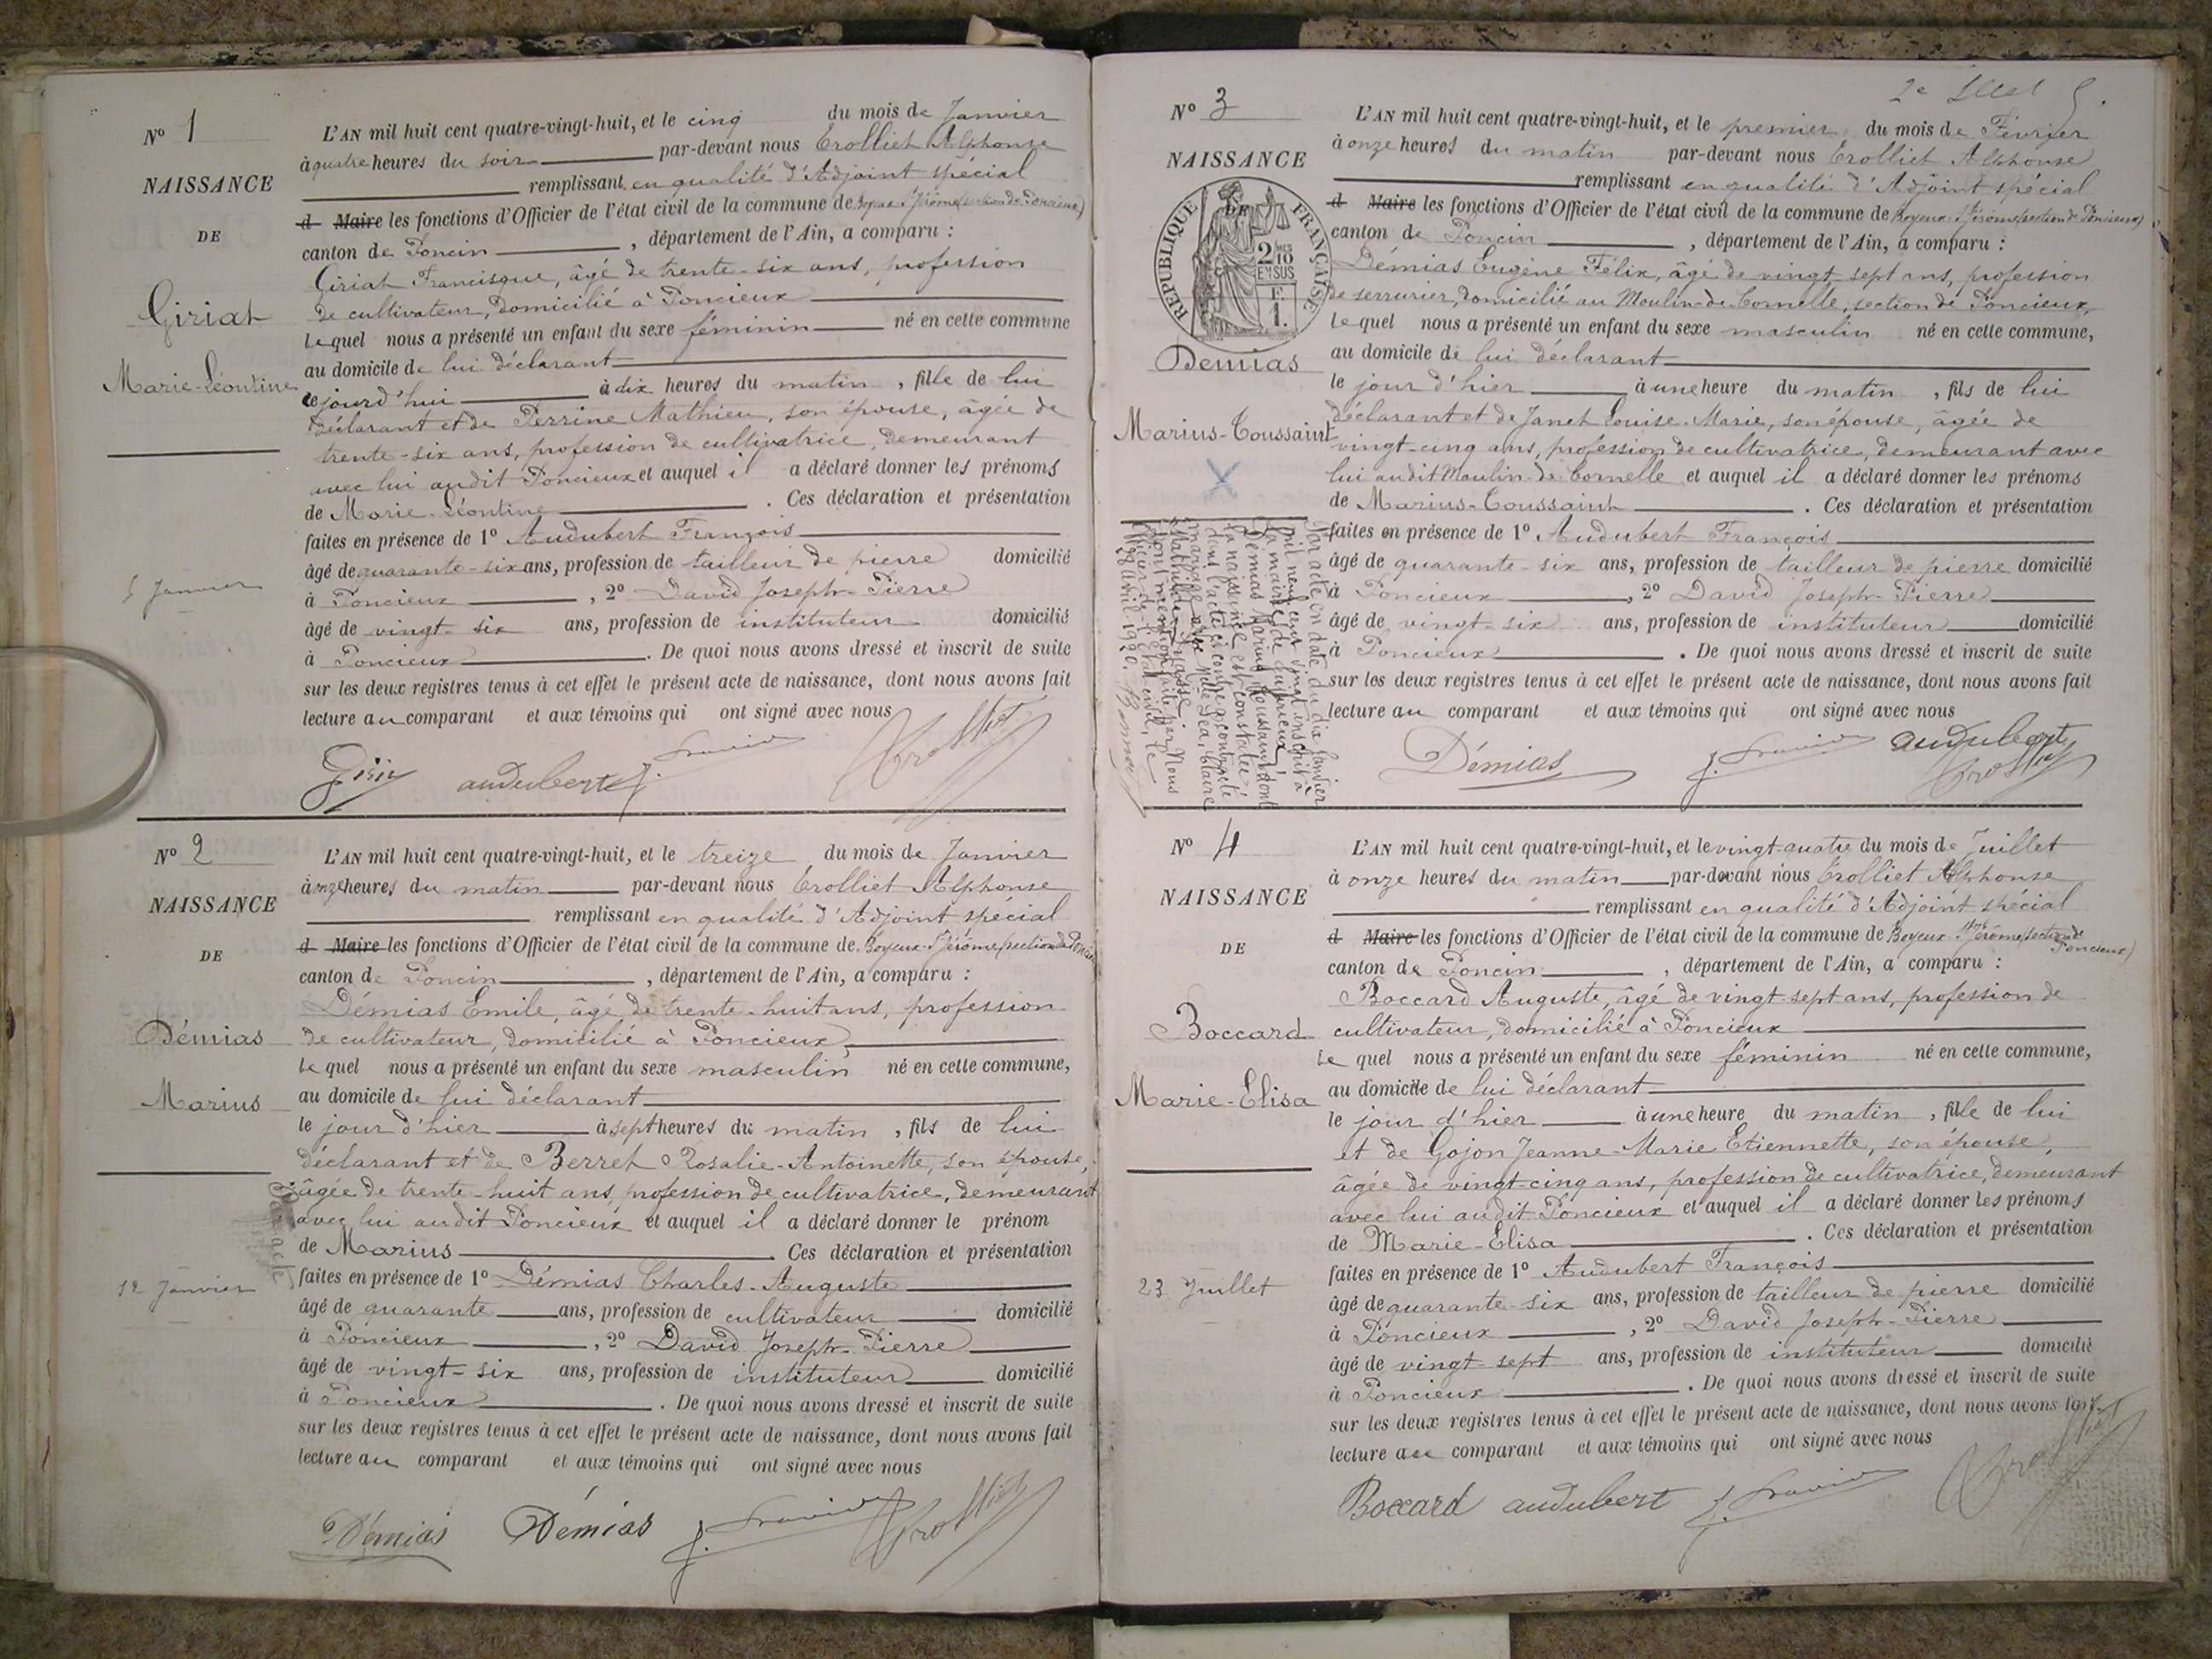 Nº 1
NAISSANCE
DE
Giriat
Marie-Léontine
5 Janvier
L'AN mil huit cent quatre-vingt-huit, et le cinq du mois de Janvier
à quatre heures du soir par-devant nous Trolliet Alphonse
remplissant en qualité d'Adjoint spécial
d Maire les fonctions d'Officier de l'état civil de la commune de Boyeux-St Jérôme (section de Poncieux)
canton de Poncin, département de l'Ain, a comparu :
Giriat Francisque, âgé de trente-six ans, profession
de cultivateur, domicilié à Poncieux
Lequel nous a présenté un enfant du sexe féminin né en cette commune
au domicile de lui déclarant
cejourd'hui à dix heures du matin, fille de lui
déclarant et de Perrine Mathieu, son épouse, âgée de
trente-six ans, profession de cultivatrice, demeurant
avec lui audit Poncieux et auquel il a déclaré donner les prénoms
de Marie-Léontine. Ces déclaration et présentation
faites en présence de 1º Audubert François
âgé de quarante-six ans, profession de tailleur de pierre domicilié
à Poncieux, 2º David Joseph-Pierre
âgé de vingt-six ans, profession de instituteur domicilié
à Poncieux. De quoi nous avons dressé et inscrit de suite
sur les deux registres tenus à cet effet le présent acte de naissance, dont nous avons fait
lecture au comparant et aux témoins qui ont signé avec nous
audubert J. David Trolliet
Nº 2
NAISSANCE
DE
Démias
Marius
12 Janvier
L'AN mil huit cent quatre-vingt-huit, et le treize du mois de Janvier
à onze heures du matin par-devant nous Trolliet Alphonse
remplissant en qualité d'Adjoint spécial
d Maire les fonctions d'Officier de l'état civil de la commune de Boyeux-St Jérôme (section de Poncieux)
canton de Poncin, département de l'Ain, a comparu :
Démias Emile, âgé de trente-huit ans, profession
de cultivateur, domicilié à Poncieux,
Lequel nous a présenté un enfant du sexe masculin né en cette commune,
au domicile de lui déclarant
le jour d'hier à sept heures du matin, fils de lui
déclarant et de Berret Rosalie-Antoinette, son épouse,
âgée de trente-huit ans, profession de cultivatrice, demeurant
avec lui audit Poncieux et auquel il a déclaré donner le prénom
de Marius. Ces déclaration et présentation
faites en présence de 1º Démias Charles-Auguste
âgé de quarante ans, profession de cultivateur domicilié
à Poncieux, 2º David Joseph-Pierre
âgé de vingt-six ans, profession de instituteur domicilié
à Poncieux. De quoi nous avons dressé et inscrit de suite
sur les deux registres tenus à cet effet le présent acte de naissance, dont nous avons fait
lecture au comparant et aux témoins qui ont signé avec nous
Démias Démias J. David Trolliet
Nº 3
NAISSANCE
DE
REPUBLIQUE FRANÇAISE
2/10 EN SUS
F. 1.
Demias
Marius-Toussaint
Par acte en date du dix Janvier
mil neuf cent vingt inscrit à
la mairie de
Démias Marius Toussaint dont
la naissance est constatée
dans l'acte ci-contre a contracté
mariage avec Melle Léa, Claire
Mathilde
Dont mention faite par Nous
Officier de l'état civil, le
avril 1920.
L'AN mil huit cent quatre-vingt-huit, et le premier du mois de Février
à onze heures du matin par-devant nous Trolliet Alphonse
remplissant en qualité d'Adjoint spécial
d Maire les fonctions d'Officier de l'état civil de la commune de Boyeux-St Jérôme (section de Poncieux)
canton de Poncin, département de l'Ain, a comparu :
Démias Eugène Félix, âgé de vingt-sept ans, profession
de serrurier, domicilié au Moulin-de-Cornelle, section de Poncieux,
Lequel nous a présenté un enfant du sexe masculin né en cette commune,
au domicile de lui déclarant
le jour d'hier à une heure du matin, fils de lui
déclarant et de Janet Louise-Marie, son épouse, âgée de
vingt-cinq ans, profession de cultivatrice, demeurant avec
lui audit Moulin-de-Cornelle et auquel il a déclaré donner les prénoms
de Marius-Toussaint. Ces déclaration et présentation
faites en présence de 1º Audubert François
âgé de quarante-six ans, profession de tailleur de pierre domicilié
à Poncieux, 2º David Joseph-Pierre
âgé de vingt-six ans, profession de instituteur domicilié
à Poncieux. De quoi nous avons dressé et inscrit de suite
sur les deux registres tenus à cet effet le présent acte de naissance, dont nous avons fait
lecture au comparant et aux témoins qui ont signé avec nous
Démias J. David audubert Trolliet
Nº 4
NAISSANCE
DE
Boccard
Marie-Elisa
23 Juillet
L'AN mil huit cent quatre-vingt-huit, et le vingt-quatre du mois de Juillet
à onze heures du matin par-devant nous Trolliet Alphonse
remplissant en qualité d'Adjoint spécial
d Maire les fonctions d'Officier de l'état civil de la commune de Boyeux-St Jérôme (section de Poncieux)
canton de Poncin, département de l'Ain, a comparu :
Boccard Auguste, âgé de vingt-sept ans, profession de
cultivateur, domicilié à Poncieux
Lequel nous a présenté un enfant du sexe féminin né en cette commune,
au domicile de lui déclarant
le jour d'hier à une heure du matin, fille de lui
et de Gojon Jeanne-Marie Etiennette, son épouse,
âgée de vingt-cinq ans, profession de cultivatrice, demeurant
avec lui audit Poncieux et auquel il a déclaré donner les prénoms
de Marie-Elisa. Ces déclaration et présentation
faites en présence de 1º Audubert François
âgé de quarante-six ans, profession de tailleur de pierre domicilié
à Poncieux, 2º David Joseph-Pierre
âgé de vingt-sept ans, profession de instituteur domicilié
à Poncieux. De quoi nous avons dressé et inscrit de suite
sur les deux registres tenus à cet effet le présent acte de naissance, dont nous avons fait
lecture au comparant et aux témoins qui ont signé avec nous
Boccard audubert J. David Trolliet